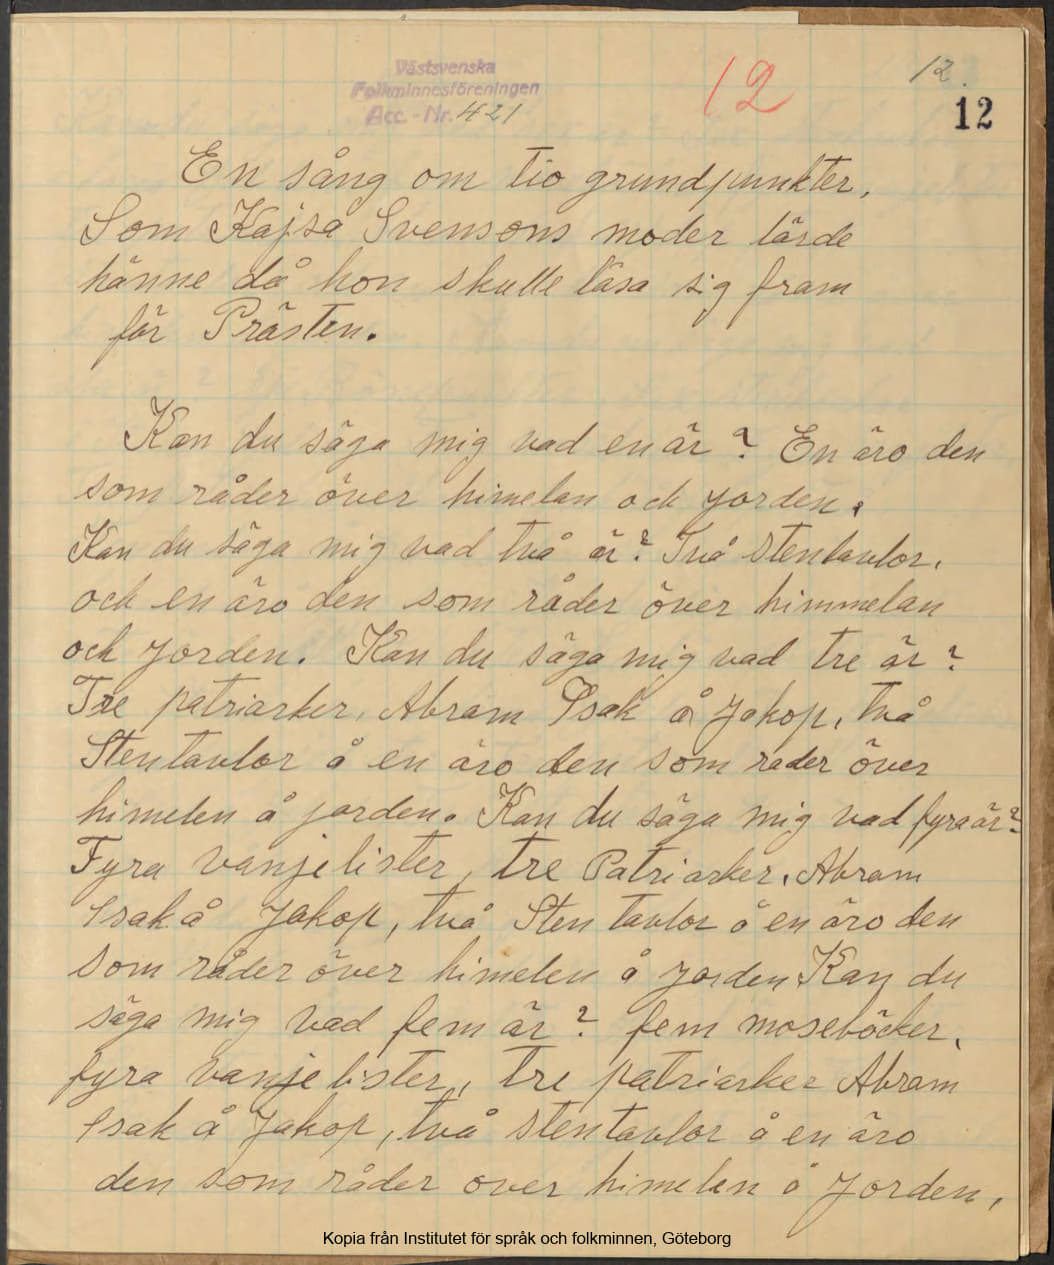 Västsvenska
Folkminnesföreningen
Acc.-Nr. 421
12
12
12
En sång om tio grundpunkter,
Som Kajsa Svensons moder lärde
hänne då hon skulle läsa sig fram
för Prästen.
Kan du säga mig vad en är? En äro den
som råder över himelan ock jorden.
Kan du säga mig vad två är? Två Stentavlor,
ock en äro den som råder över himmelan
ock jorden. Kan du säga mig vad tre är?
Tre patriarker, Abram Isak å Jakop, två
Stentavlor å en äro den som råder över
himelen å jorden. Kan du säga mig vad fyra är?
Fyra vanjelister, tre Patriarker, Abram
Isak å Jakop, två Sten tavlor å en äro den
som råder över himelen å jorden Kan du
säga mig vad fem är? fem moseböcker,
fyra vanjelister, tre patriarker Abram
Isak å Jakop, två stentavlor å en äro
den som råder over himelen å Jorden,
Kopia från Institutet för språk och folkminnen, Göteborg